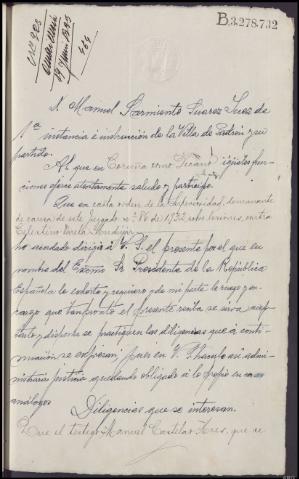 B.3.278.732
464
D. Manuel Sarmiento Suarez Juez de
1ª instancia é instrucción de la Villa de Padrón y su
partido.
Al que en Coruña como Decano
ciones ejerce atentamente saludo y participo.
Que en carta orden de la Superioridad, dimanante
de causa de este Juzgado nº 86 de 1932 sobre lesiones, contra
he acordado dirigir á V. S. el presente por el que en
nombre del Excmo. Sr. Presidente de la República
Española le exhorto y requiero y de mi parte le ruego y en-
cargo que tan pronto el presente reciba se sirva acep-
tarlo y disponer se practiquen las diligencias que á conti-
nuación se expresan, pues en V. S. hacerlo así admi-
nistrará justicia quedando obligado á lo propio en casos
análogos.
Diligencias que se interesan.
Que el testigo Manuel Castelar Ares, que se